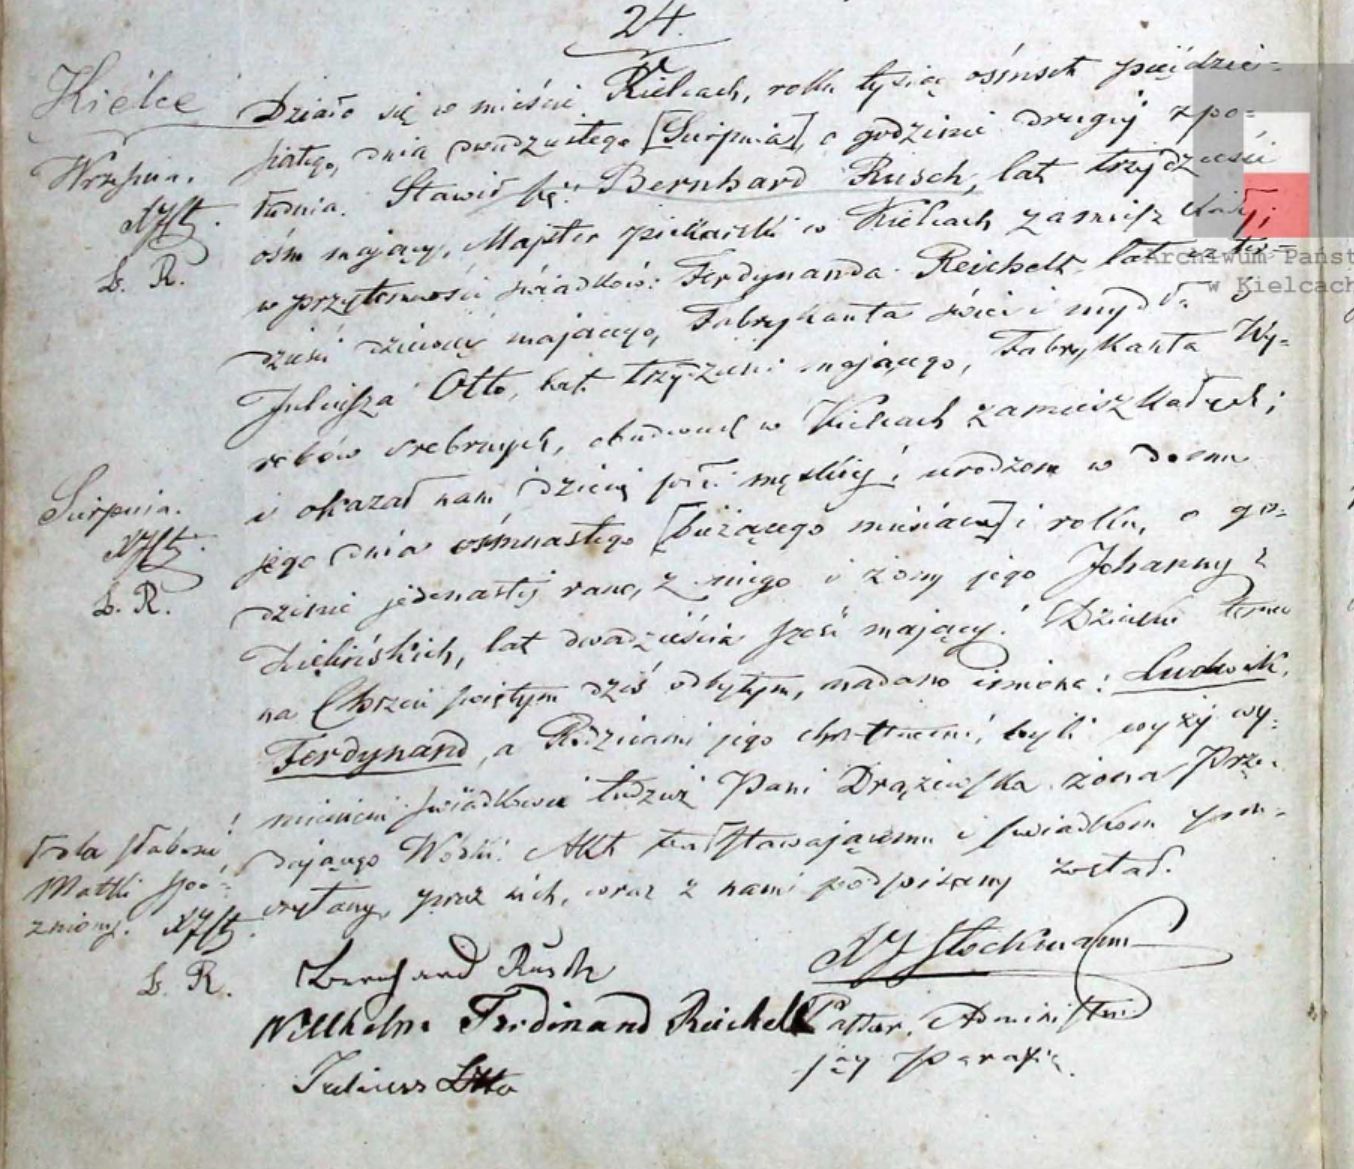 24.
Kielce
Działo się w mieście Kielcach, roku tysiąc ośmset pięćdzie-
siątego, dnia dwudziestego [Sierpnia], o godzinie drugiej z po-
Września.
łudnia. Stawił się: Bernhard Rusch, lat trzydzieści
ośm mający, Majster piekarski w Kielcach zamieszkały;
B. R.
w przytomności świadków: Ferdynanda Reichelt, lat czter-
dzieści dziewięć mającego, Fabrykanta świec i mydła i
Juliusza Otto, lat trzydzieści mającego, Fabrykanta Wy-
robów srebrnych, obudwuch w Kielcach zamieszkałych;
i okazał nam dziecię płci męskiej, urodzone w domu
Sierpnia.
jego dnia ośmnastego [bieżącego miesiąca] i roku, o go-
dzinie jedenastej rano, z niego i żony jego Johanny z
B. R.
Zielińskich, lat dwadzieścia sześć mającej. Dziecku temu
na Chrzcie świętym dziś odbytym, nadano imiona: Ludwik,
Ferdynand, a Rodzicami jego chrzestnemi, byli wyżej wy-
mienieni świadkowie tudzież Pani Drążewska żona Prze-
dla słabości
dającego Wódki. Akt ten stawającemu i świadkom prze-
Matki spóź-
czytany, przez nich, wraz z nami podpisany został.
niony.
B. R.
Bernhard Rusch
Stockmann
Wilhelm Ferdinand Reichelt
Pastor, Administru-
jący Parafią.
Julius Otto
Archiwum Państ
w Kielcach